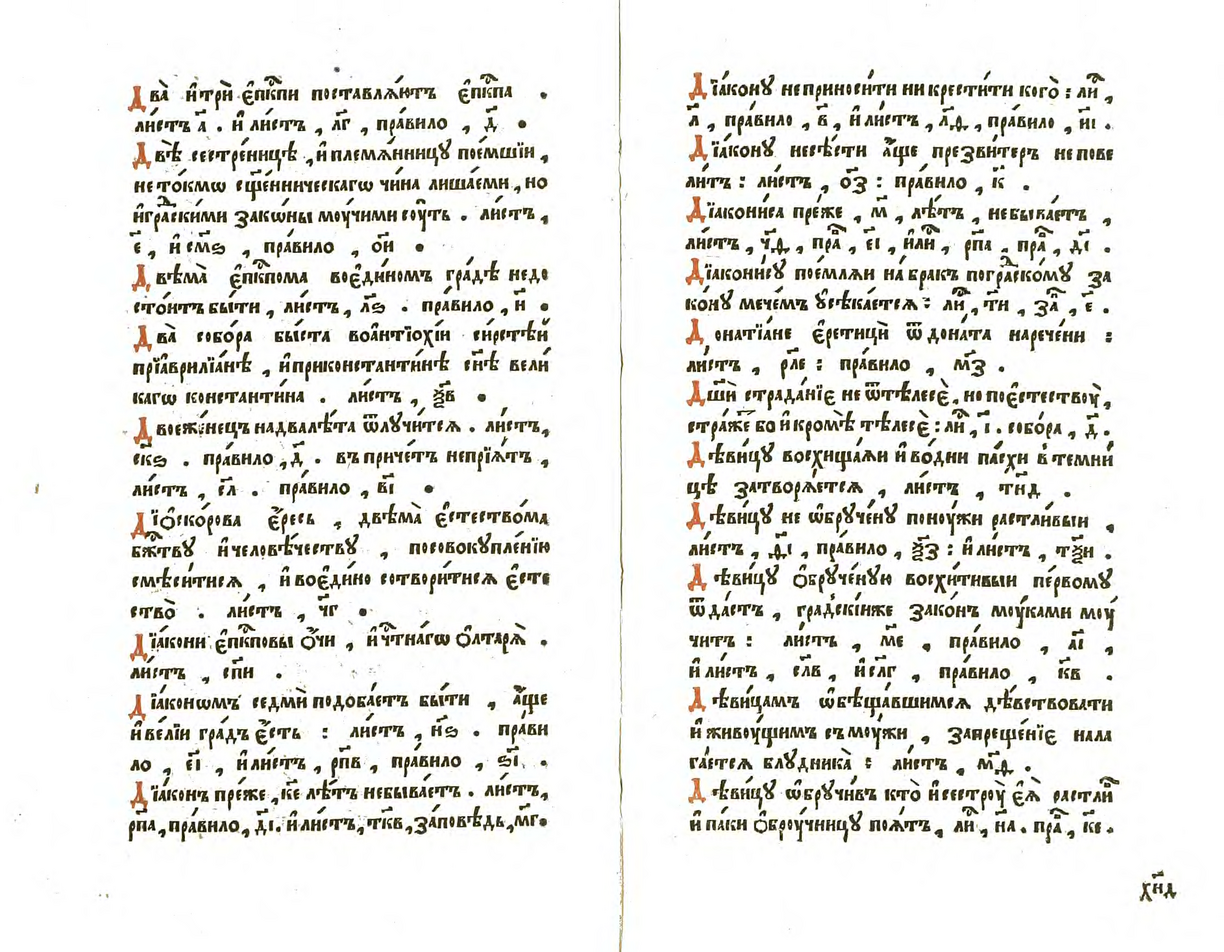 Два̀ и҆трѝ є҆пⷭ҇кпи поставлѧ́ютъ є҆пⷭ҇кпа .
ли́стъ а҃ . и҆ ли́стъ , л҃г , пра́вило , д҃ .
Двѣ̀ сестре́ницѣ , и҆ племѧ́нницꙋ пое́мшїи ,
не то́кмѡ сщ҃е́нническагѡ чи́на лиша́еми , но
и҆гра́дскими зако́ны моу́чими соу́ть . ли́стъ ,
е҃ , и҆ см҃ѕ , пра́вило , о҃и .
Двѣма̀ є҆пⷭ҇кпома воє҆ди́номъ гра́дѣ недо
сто́итъ бы́ти , ли́стъ , л҃ѕ . пра́вило , и҃ .
Два̀ собо́ра бы́ста воа҆нтїохі́и си́рстѣй
прїа҆врилїа́нѣ , и҆приконстанти́нѣ сн҃ѣ вели́
кагѡ константи́на . ли́стъ , ѯ҃в .
Двоеже́нецъ надвалѣ́та ѿлꙋчи́тсѧ . ли́стъ ,
ск҃ѕ . пра́вило , д҃ . въ приче́тъ неприѧ́тъ ,
ли́стъ , с҃л . пра́вило , в҃і .
Дїѻ҆ско́рова є҆́ресь , двѣма̀ є҆стество́ма
бж҃твꙋ̀ и҆человѣ́честву , посовокꙋпле́нїю
смѣси́тисѧ , и҆ воє҆ди́но сотвори́тисѧ є҆сте
ство̀ . ли́стъ , ч҃г .
Дїа́кони є҆пⷭ҇кповы ѻ҆́чи , и҆чⷭ҇тна́гѡ ѻ҆лтарѧ̀ .
ли́стъ , сп҃и .
Дїа́кономъ седмѝ подоба́етъ бы́ти , а҆́ще
и҆ ве́лїи гра́дъ є҆́сть : ли́стъ , н҃ѕ . пра́ви
ло , е҃і , и҆ ли́стъ , рп҃в , пра́вило , ѕ҃і .
Дїа́конъ пре́же , к҃е лѣ́тъ небыва́етъ . ли́стъ ,
рп҃а , пра́вило , д҃і . и҆ ли́стъ , тк҃в , за́повѣдь , м҃г .
Дїа́конꙋ не приноси́ти ни крести́ти кого̀ : лиⷭ҇ ,
л҃ , пра́вило , в҃ , и҆ ли́стъ , л҃д , пра́вило , и҃і .
Дїа́конꙋ несѣ́сти а҆́ще презви́теръ не пове
ли́тъ : ли́стъ , о҃з : пра́вило , к҃ .
Дїакони́са пре́же , м҃ , лѣ́тъ , не быва́етъ ,
ли́стъ , ч҃д , праⷡ҇ , е҃і , и҆лиⷭ҇ , рп҃а , праⷡ҇ , д҃і .
Дїакони́сꙋ пое́млѧи на́ бракъ погра́дскомꙋ за
ко́нꙋ мече́мъ ᲂу҆сѣка́етсѧ : лиⷭ҇ , т҃и , заⷱ҇ , е҃ .
Донатїа́не є҆ретицы̀ ѿ дона́та нарече́ни :
ли́стъ , рл҃е : пра́вило , м҃з .
Дш҃ѝ страда́нїє не ѿтѣлесѐ , но поє҆стествоу̀ ,
стра́же бо и҆ кромѣ̀ тѣлесѐ : лиⷭ҇ , і҃ . собо́ра , д҃ .
Дѣви́цꙋ восхища́ѧи и҆ во́ дни па́схи в темни́
цѣ затворѧ́етсѧ , ли́стъ , тн҃д .
Дѣви́цꙋ не ѡ҆брꙋче́нꙋ поноу́жи растли́выи ,
ли́стъ , д҃і , пра́вило , ѯ҃з : и҆ ли́стъ , тѯ҃и .
Дѣви́цꙋ ѻ҆брꙋче́нꙋю восхи́тивыи пе́рвомꙋ
ѿда́стъ , гра́дскїиже зако́нъ моу́ками моу́
читъ : ли́стъ , м҃е , пра́вило , а҃і ,
и҆ ли́стъ , сл҃в , и҆ сл҃г , пра́вило , к҃в .
Дѣви́цамъ ѡ҆бѣща́вшимсѧ дѣ́вствовати
и҆ живоу́щимъ съ моу́жи , запреще́нїє нала
га́етсѧ блꙋдника̀ : ли́стъ , м҃д .
Дѣви́цꙋ ѡ҆брꙋчи́въ кто̀ и҆ сестроу̀ є҆ѧ̀ растли́
и҆ паки ѻ҆броу́чницꙋ поѧ́тъ , лиⷭ҇ , н҃а . праⷡ҇ , к҃е .
хн҃д